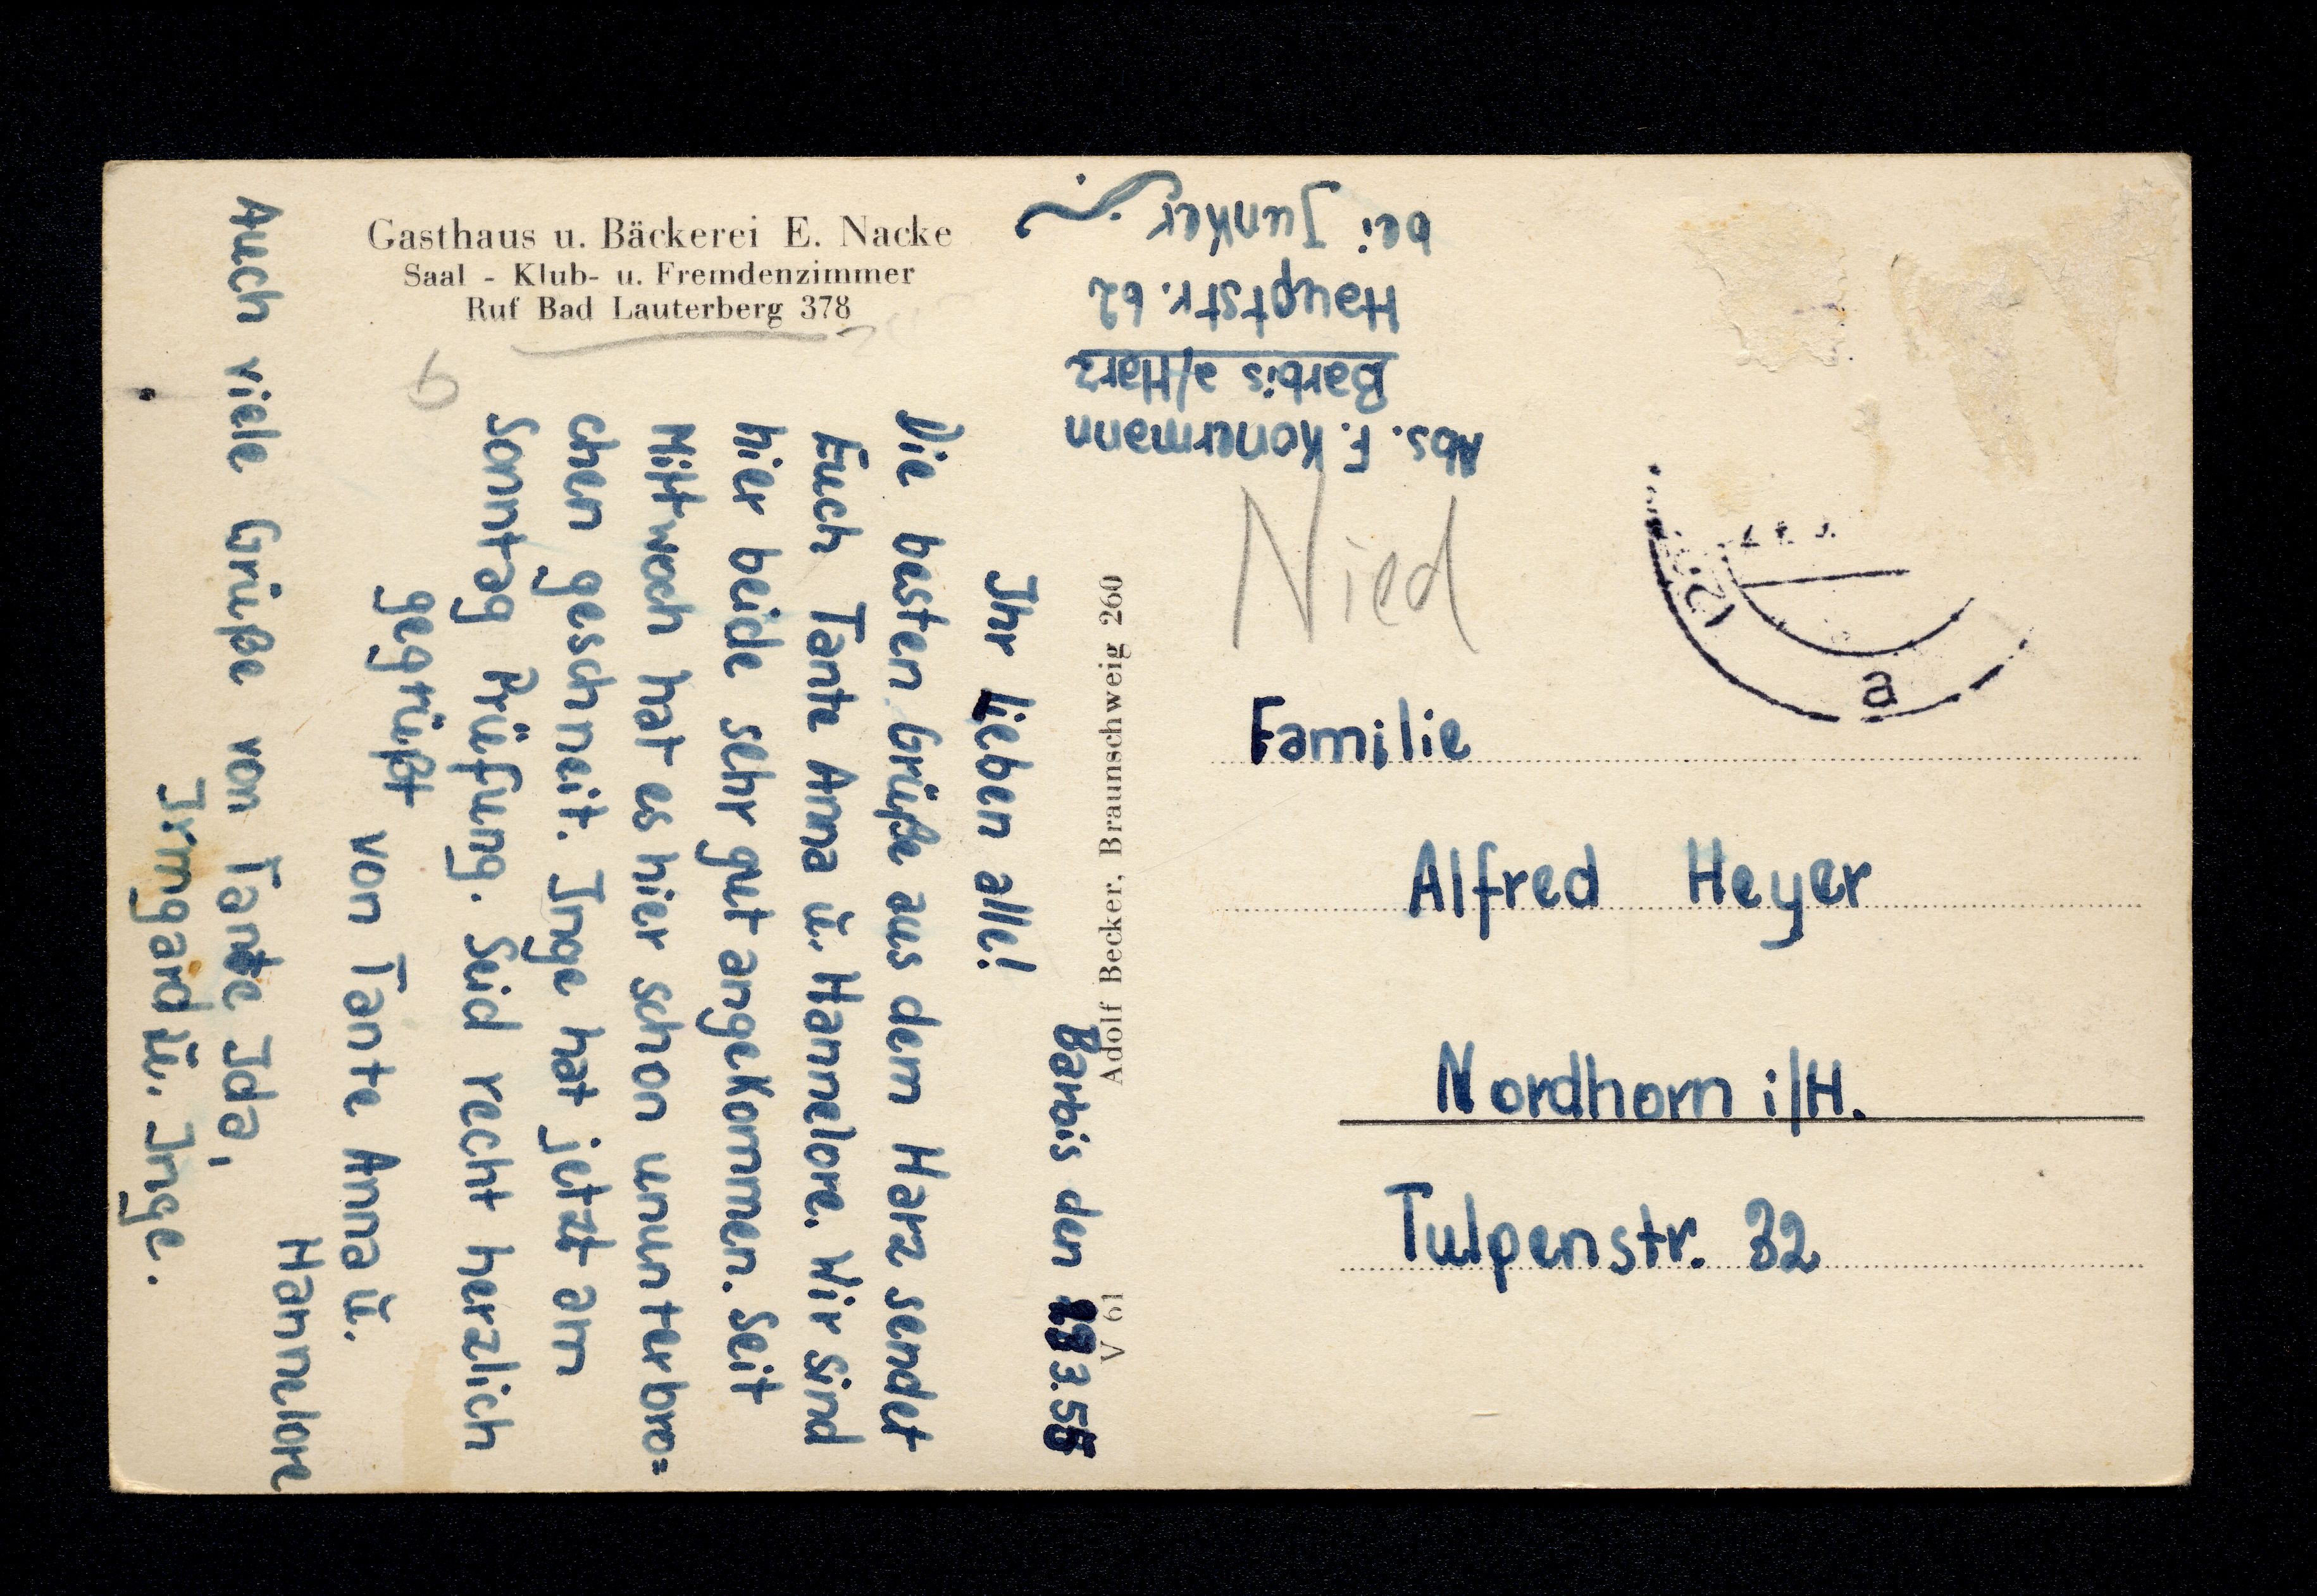 Gasthaus u. Bäckerei E. Nacke
Saal - Klub- u. Fremdenzimmer
Ruf Bad Lauterberg 378
9
Abs. F. Konermann
Barbis a/Harz
Hauptstr. 62
bei Junker
Nied
Barbis den 3.55
Ihr Lieben alle!
Die besten Grüße aus dem Harz sendet
Euch Tante Anna ü. Hannelore. Wir sind
hier beide sehr gut angekommen. Seit
Mittwoch hat es hier schon ununterbro=
chen geschneit. Inge hat jetzt am
Sonntag Prüfung. Seid recht herzlich
gegrüßt
von Tante Anna ü.
Hannelore
Auch viele Grüße von Tante Ida,
Irmgard ü. Inge.
Adolf Becker, Braunschweig 260
V 61
a
Familie
Alfred Heyer
Nordhorn i/H.
Tulpenstr. 32